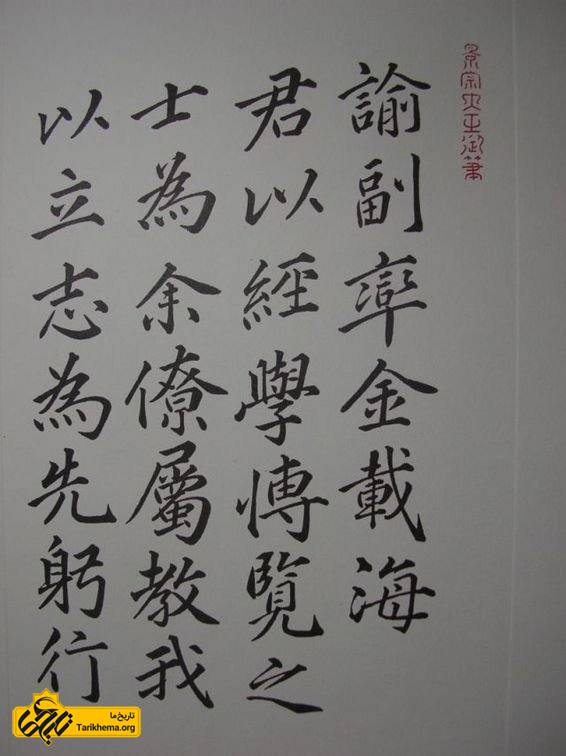 景宗大王御筆
諭副率金載海
君以經學博覽之
士為余僚屬教我
以立志為先躬行
تاریخ‌ما
Tarikhema.org